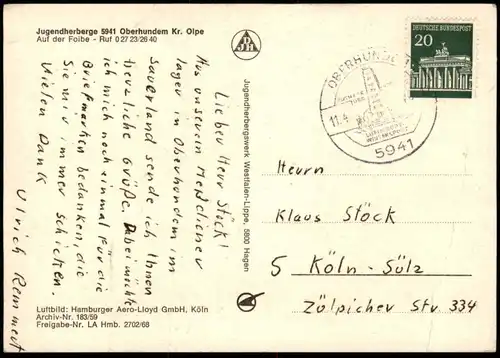 Jugendherberge 5941 Oberhundem Kr. Olpe
Auf der Foibe - Ruf 0 27 23/26 40
DJH
Jugendherbergswerk Westfalen-Lippe, 5800 Hagen
DEUTSCHE BUNDESPOST
20
OBERHUNDEM
11.4
5941
Lieber Herr Stöck!
Aus unserem Meßdiener
lager in Oberhundem im
Sauerland sende ich Ihnen
herzliche Grüße. Dabei möchte
ich mich noch einmal für die
Briefmarken bedanken, die
Sie mir immer schicken.
Vielen Dank
Ulrich Remmert
Herrn
Klaus Stöck
5 Köln-Sülz
Zülpicher Str 334
Luftbild: Hamburger Aero-Lloyd GmbH, Köln
Archiv-Nr. 183/59
Freigabe-Nr. LA Hmb. 2702/68